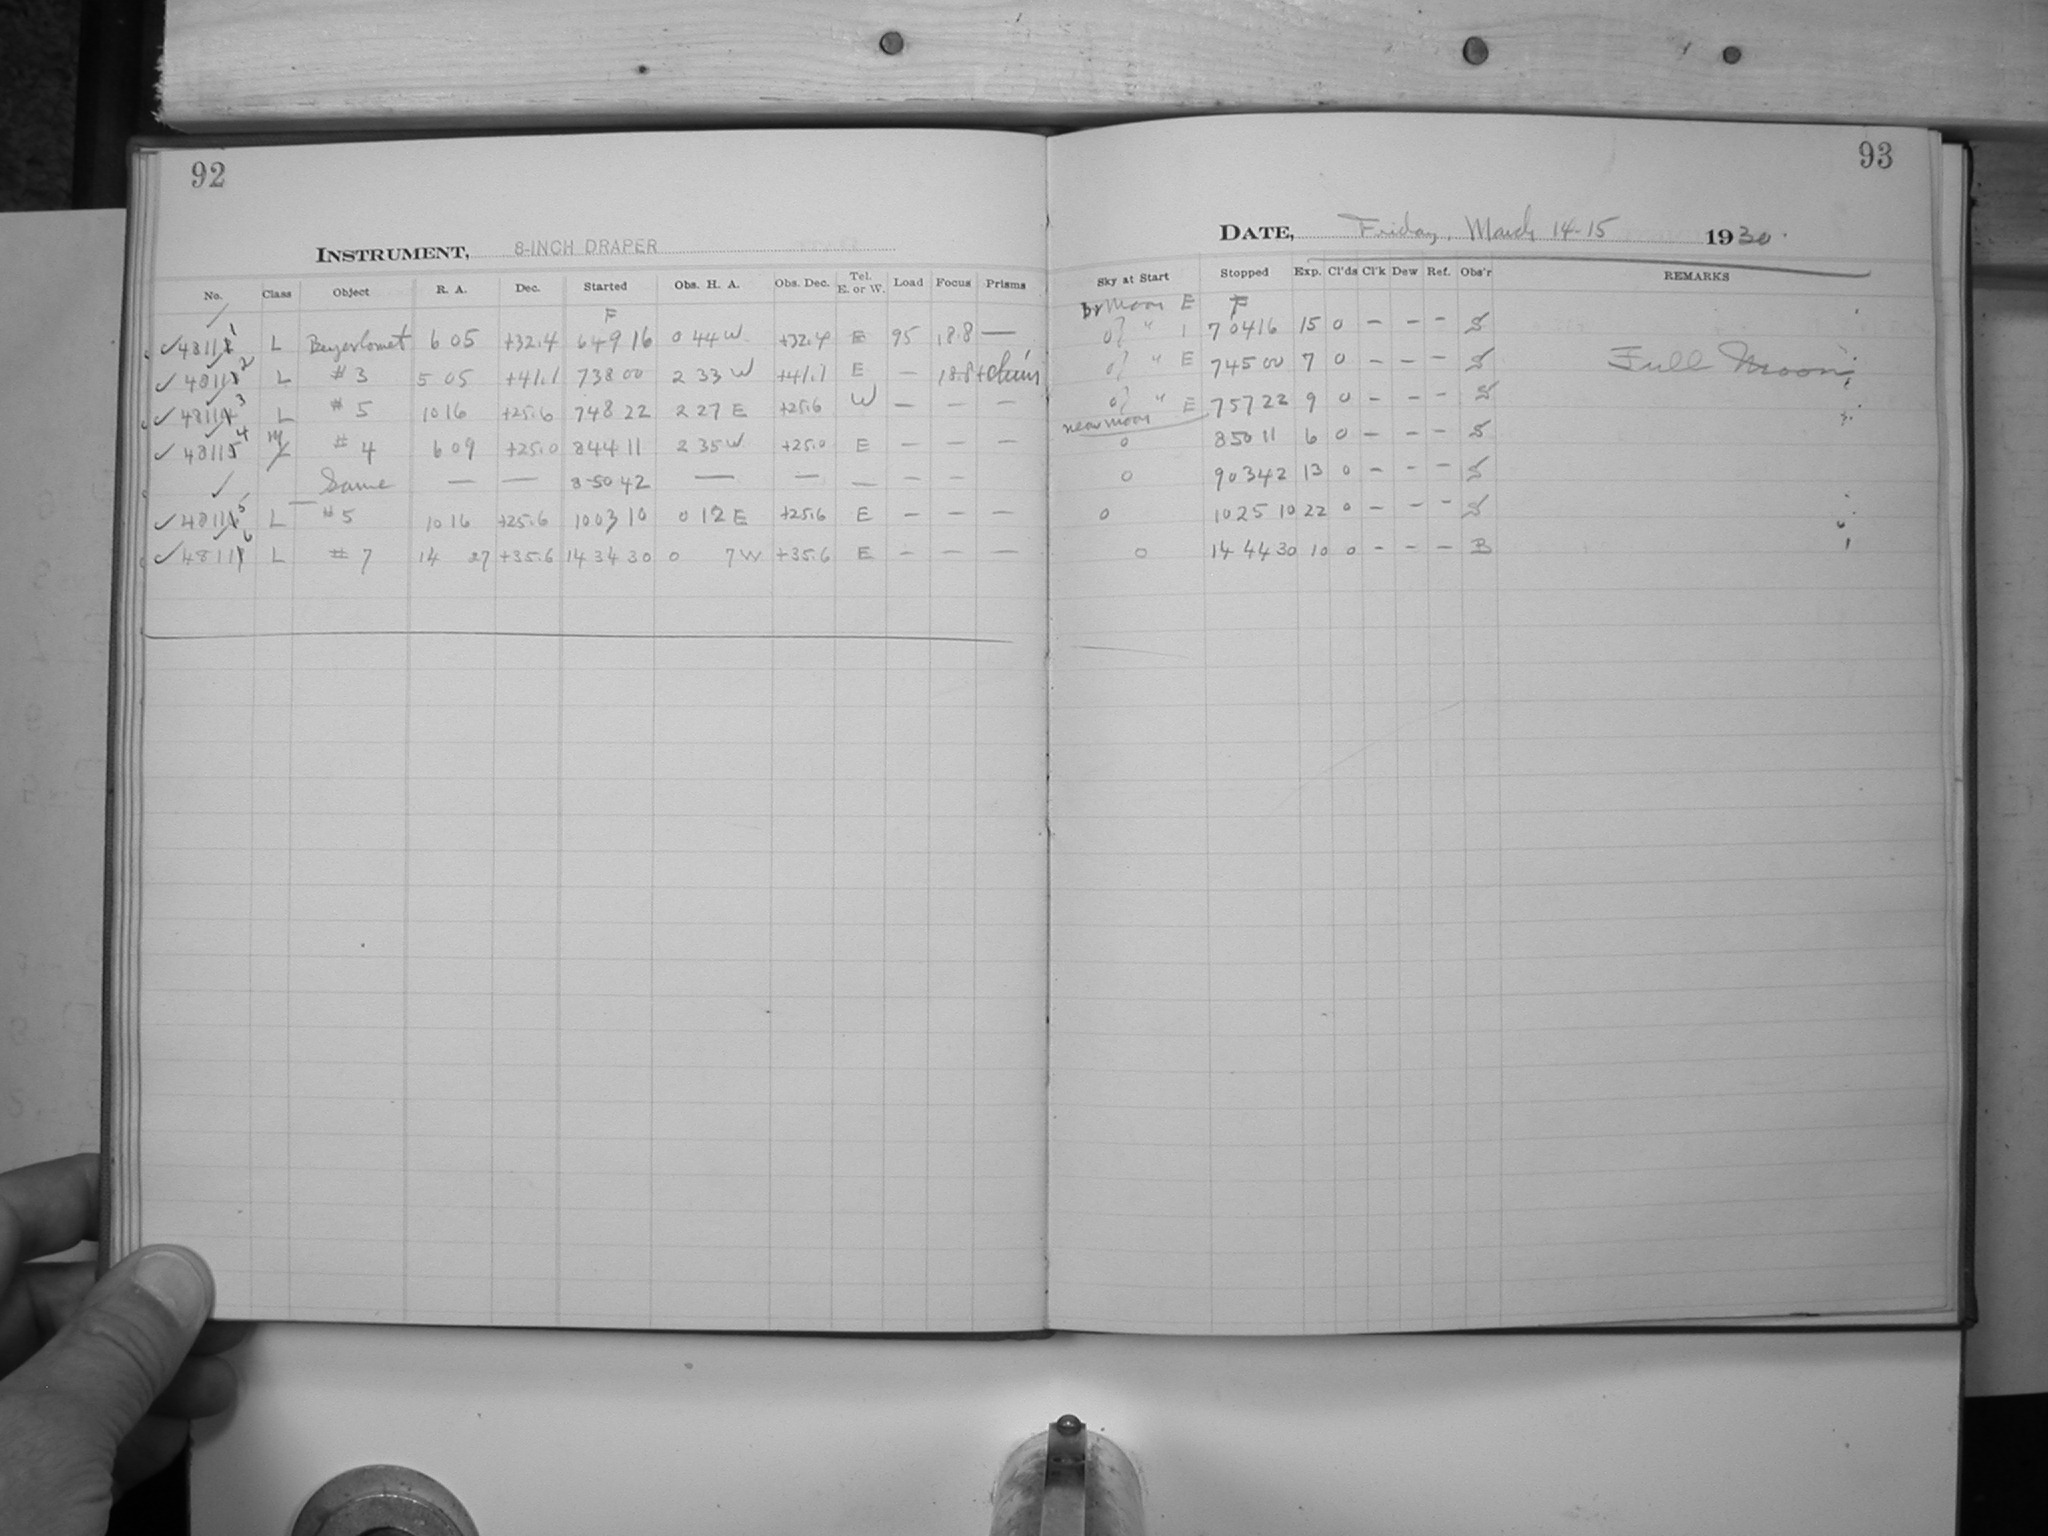 92
INSTRUMENT, 8-INCH DRAPER
No. Class Object R. A. Dec. Started Obs. H. A. Obs. Dec. Tel. E. or W. Load Focus Prisms
F
L Beyer Comet 6 05 +32.4 6 49 16 0 44 W +32.4 E 95 18.8 —
L #3 5 05 +41.1 7 38 00 2 33 W +41.1 E — 18.8
L #5 10 16 +25.6 7 48 22 2 27 E +25.6 W — — —
#4 6 09 +25.0 8 44 11 2 35 W +25.0 E — — —
Same — — 8 50 42 — — — — —
L #5 10 16 +25.6 10 03 10 0 12 E +25.6 E — — —
L #7 14 27 +35.6 14 34 30 0 7 W +35.6 E — — —
93
DATE, Friday, March 14-15 1930.
Sky at Start Stopped Exp. Cl'ds Cl'k Dew Ref. Obs'r REMARKS
br Moon E F
" 7 04 16 15 0 — — — S
" E 7 45 00 7 0 — — — S Full Moon
" E 7 57 22 9 0 — — — S
near moon
0 8 50 11 6 0 — — — S
0 9 03 42 13 0 — — — S
0 10 25 10 22 0 — — — S
0 14 44 30 10 0 — — — B